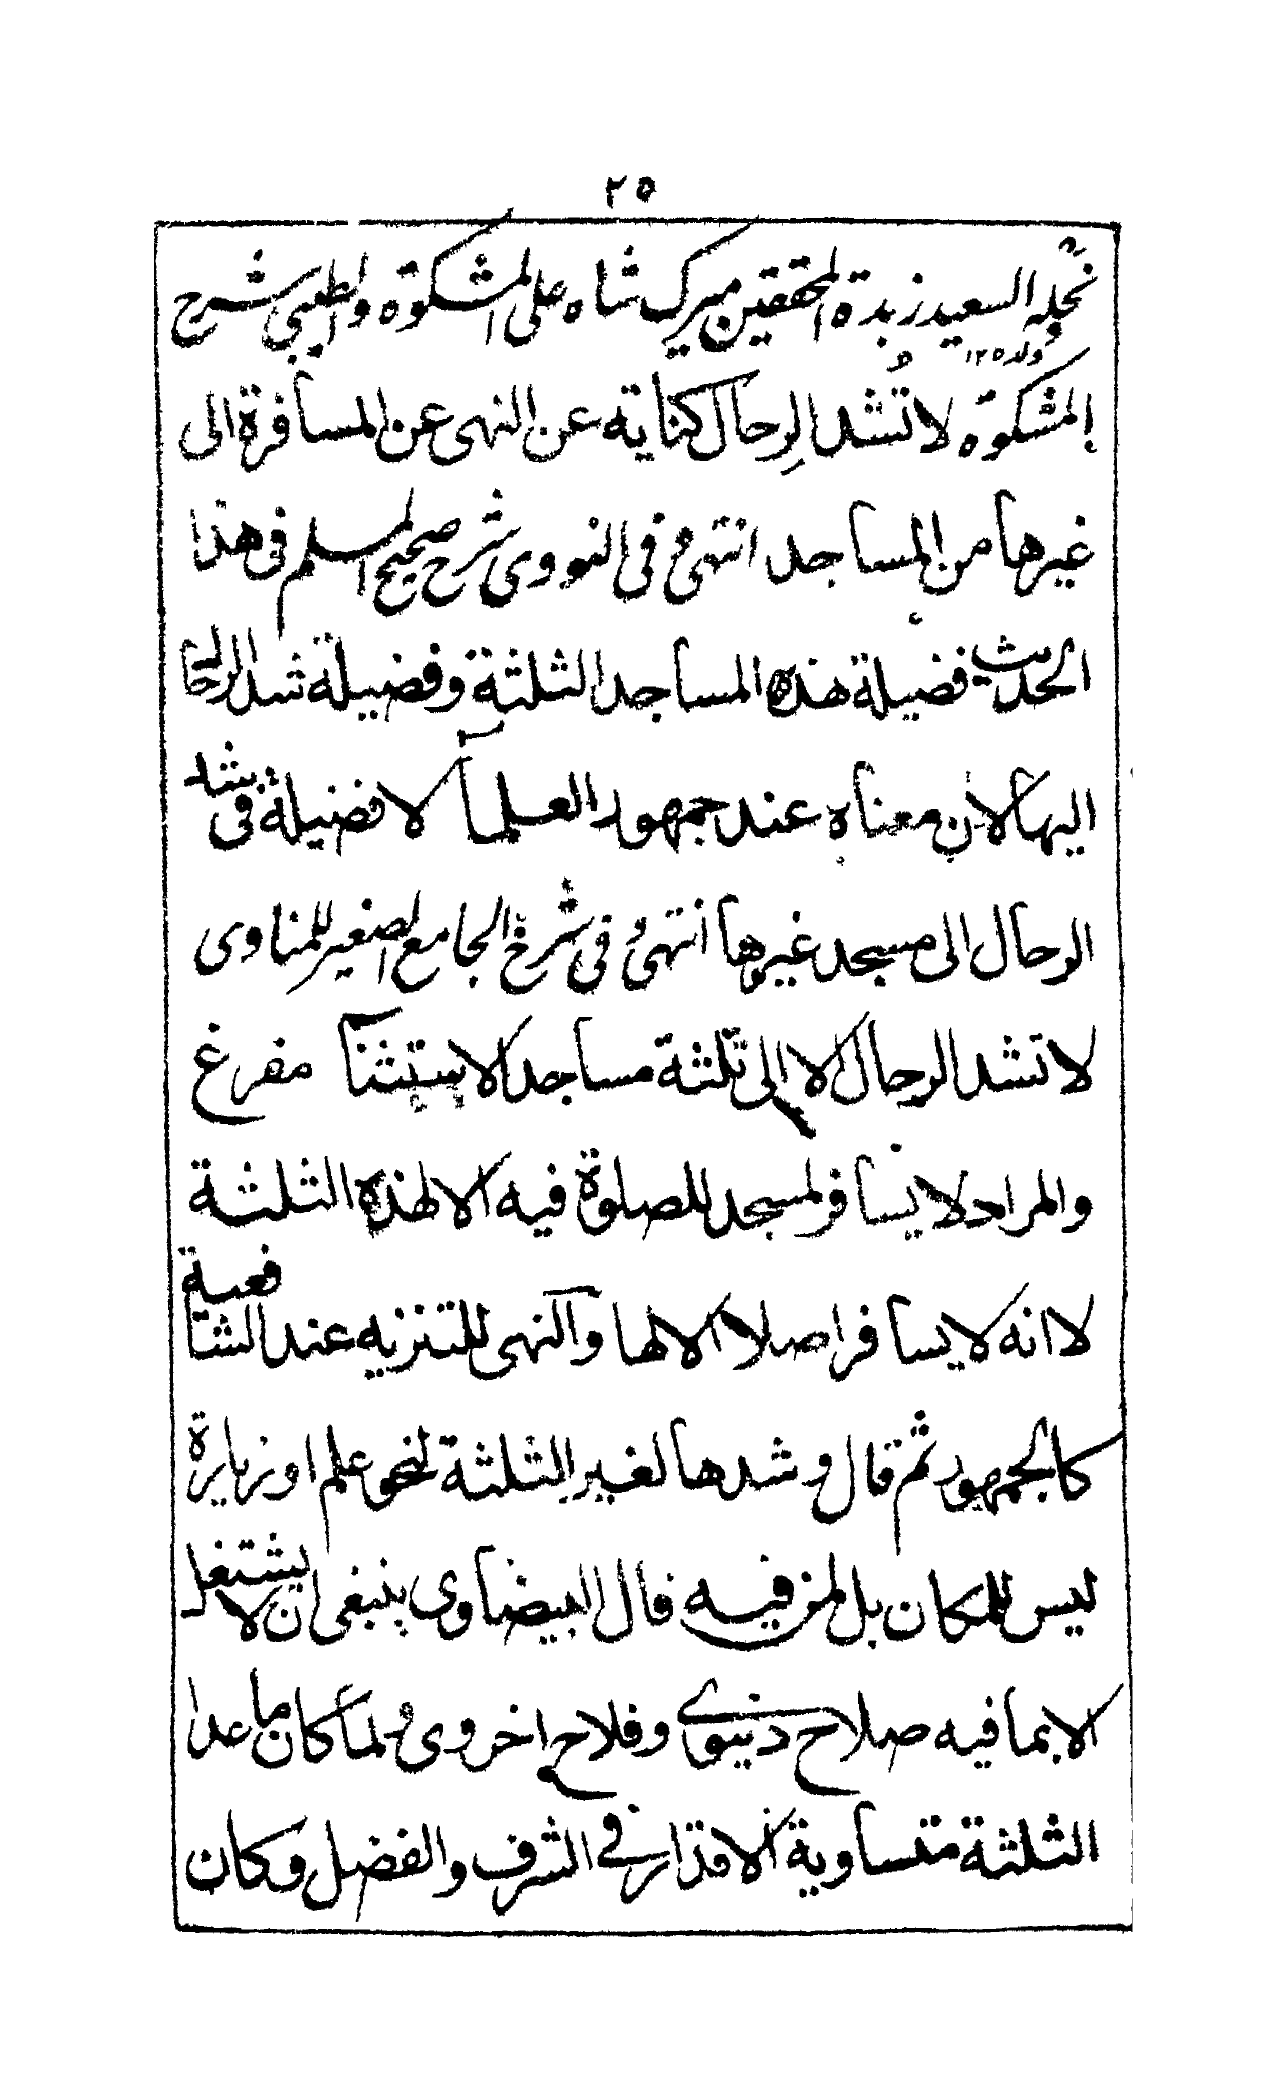 ٢٥
نجله السعيد زبدة المحققين ميرك شاه على المشكوة والطيبي شرح
المشكوة لا تُشد الرحال كناية عن النهى عن المسافرة الى
غيرها من المساجد انتهى وفى النووى شرح صحيح المسلم فى هذا
الحديث فضيلة هذه المساجد الثلثة وفضيلة شد الرحا
اليها لان معناه عند جمهور العلماء لا فضيلة فى شد
الرحال الى مسجد غيرها انتهى وفى شرح الجامع الصغير للمناوى
لا تشد الرحال الا الى ثلثة مساجد الاستثناء مفرغ
والمراد لا يسافر لمسجد للصلوة فيه الا لهذه الثلثة
لا انه لا يسافر اصلا الا لها والنهى للتنزيه عند الشافعية
كالجمهور ثم قال وشدها لغير الثلثة لنحو علم او زيارة
ليس للمكان بل لمن فيه قال البيضاوى ينبغى ان لا يشتغل
الا بما فيه صلاح دنيوى وفلاح اخروى ولما كان ما عدا
الثلثة متساوية الاقدار فى الشرف والفضل وكان